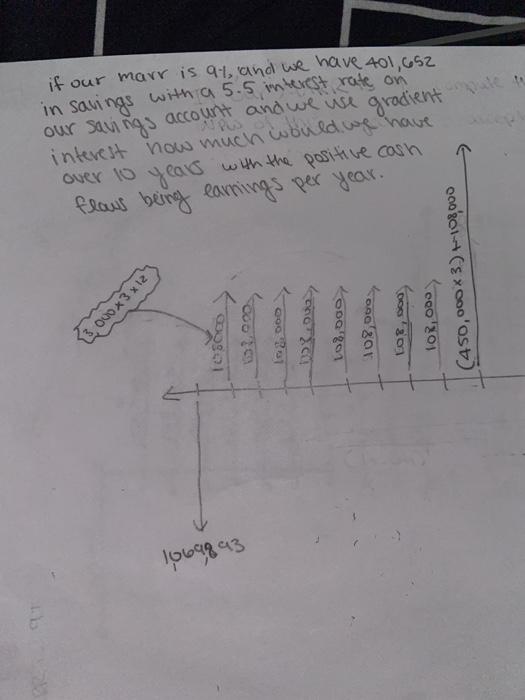 if our marr is 9%, and we have 401,652
in savings with a 5.5 interest rate on
our savings account and we use gradient
interest how much would we have
over 10 years with the positive cash
flows being earnings per year.
3,000 x 3 x 12
108,000
108,000
108,000
108,000
108,000
108,000
108,000
108,000
(450,000 x 3) + 108,000
1,069,893